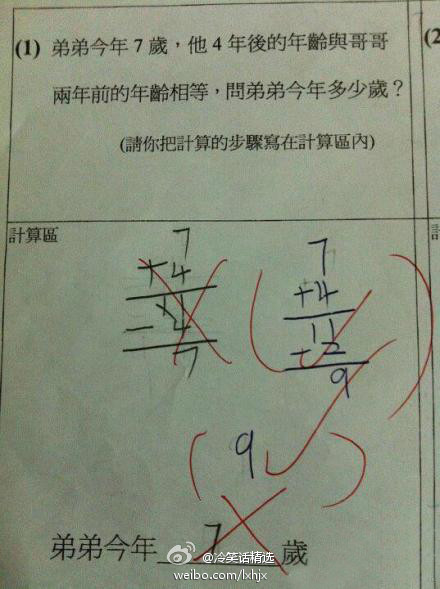 (1) 弟弟今年 7 歲，他 4 年後的年齡與哥哥
(2
兩年前的年齡相等，問弟弟今年多少歲？
(請你把計算的步驟寫在計算區內)
計算區
7
+4
11
-4
7
7
+4
11
-2
9
(9)
弟弟今年 7 歲
@冷笑话精选
weibo.com/lxhjx